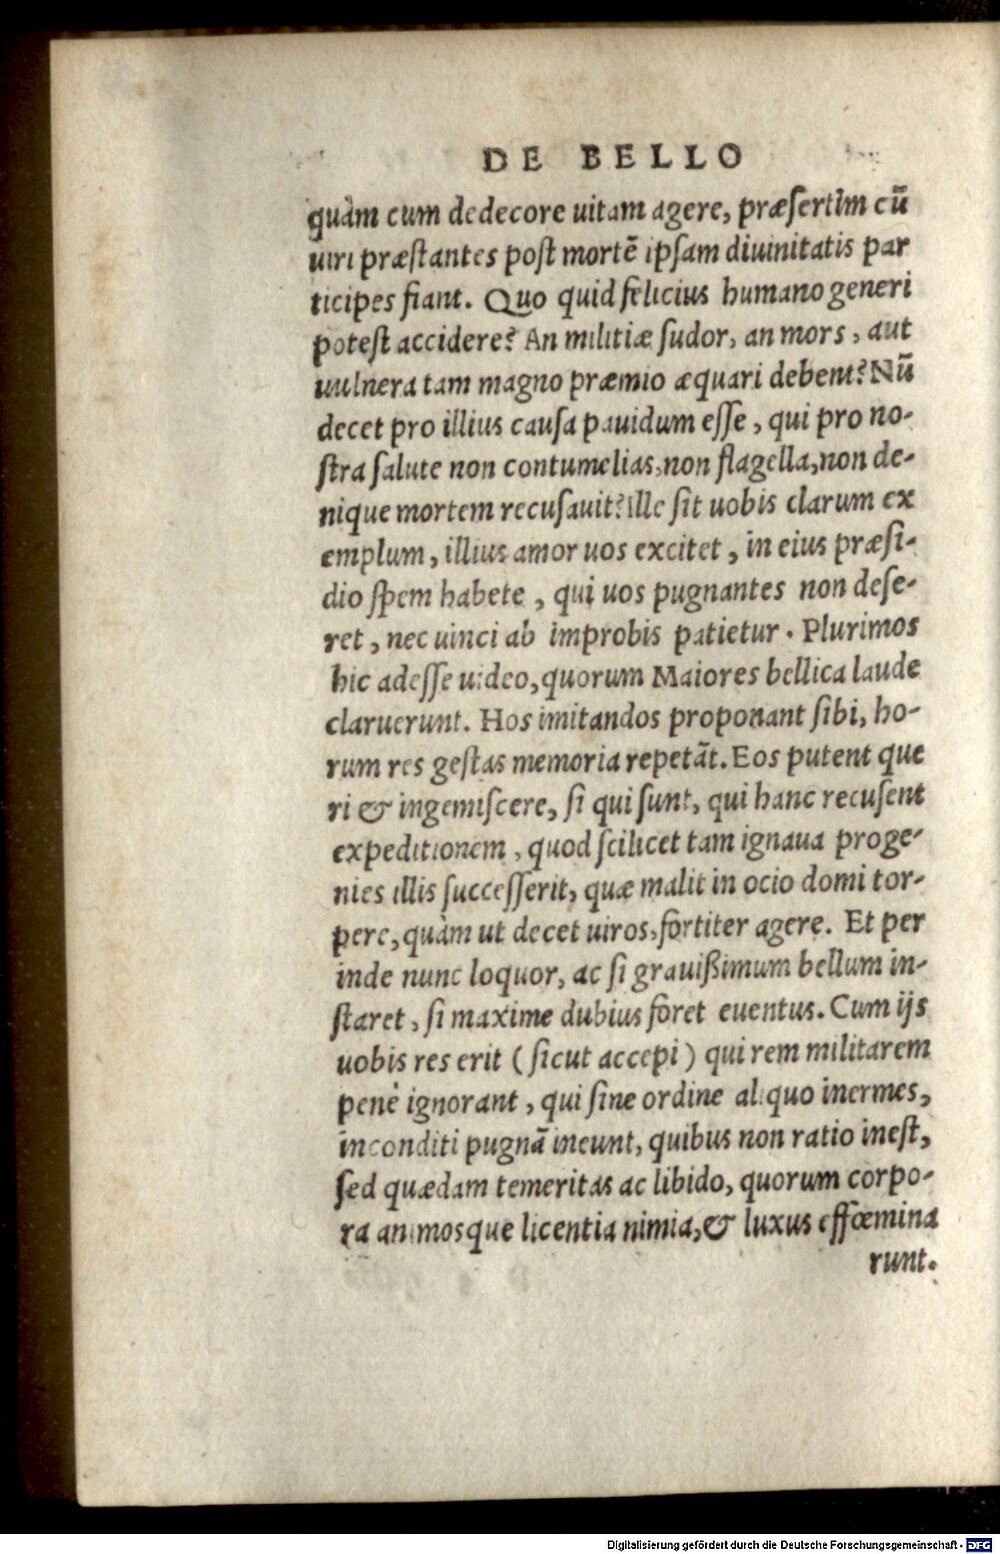 DE BELLO
quàm cum dedecore uitam agere, præſertim cū
uiri præſtantes poſt mortē ipſam diuinitatis par
ticipes fiant. Quo quid felicius humano generi
poteſt accidere? An militiæ ſudor, an mors, aut
uulnera tam magno præmio æquari debent? Nū
decet pro illius cauſa pauidum eſſe, qui pro no-
ſtra ſalute non contumelias, non flagella, non de-
nique mortem recuſauit? Ille ſit uobis clarum ex
emplum, illius amor uos excitet, in eius præſi-
dio ſpem habete, qui uos pugnantes non deſe-
ret, nec uinci ab improbis patietur. Plurimos
hic adeſſe uideo, quorum Maiores bellica laude
claruerunt. Hos imitandos proponant ſibi, ho-
rum res geſtas memoria repetāt. Eos putent que
ri & ingemiſcere, ſi qui ſunt, qui hanc recuſent
expeditionem, quod ſcilicet tam ignaua proge-
nies illis ſucceſſerit, quæ malit in ocio domi tor-
pere, quàm ut decet uiros, fortiter agere. Et per
inde nunc loquor, ac ſi grauißimum bellum in-
ſtaret, ſi maxime dubius foret euentus. Cum ijs
uobis res erit (ſicut accepi) qui rem militarem
penè ignorant, qui ſine ordine aliquo inermes,
inconditi pugnā ineunt, quibus non ratio ineſt,
ſed quædam temeritas ac libido, quorum corpo-
ra animosque licentia nimia, & luxus effœmina
runt.
Digitalisierung gefördert durch die Deutsche Forschungsgemeinschaft - DFG